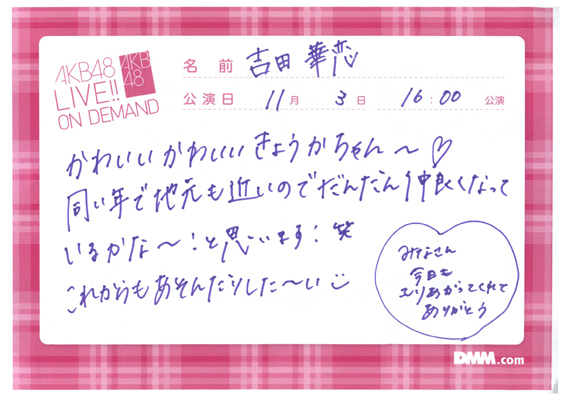 AKB48
LIVE!!
ON DEMAND
AKB
48
名前 吉田 華恋
公演日 11月 3日 16:00 公演
かわいいかわいい きょうかちゃん〜♡
同い年で地元も近いのでだんだん仲良くなって
いるかな〜!と思います!笑
これからもあそんだりした〜い
みなさん
今日も
もりあがってくれて
ありがとう
DMM.com